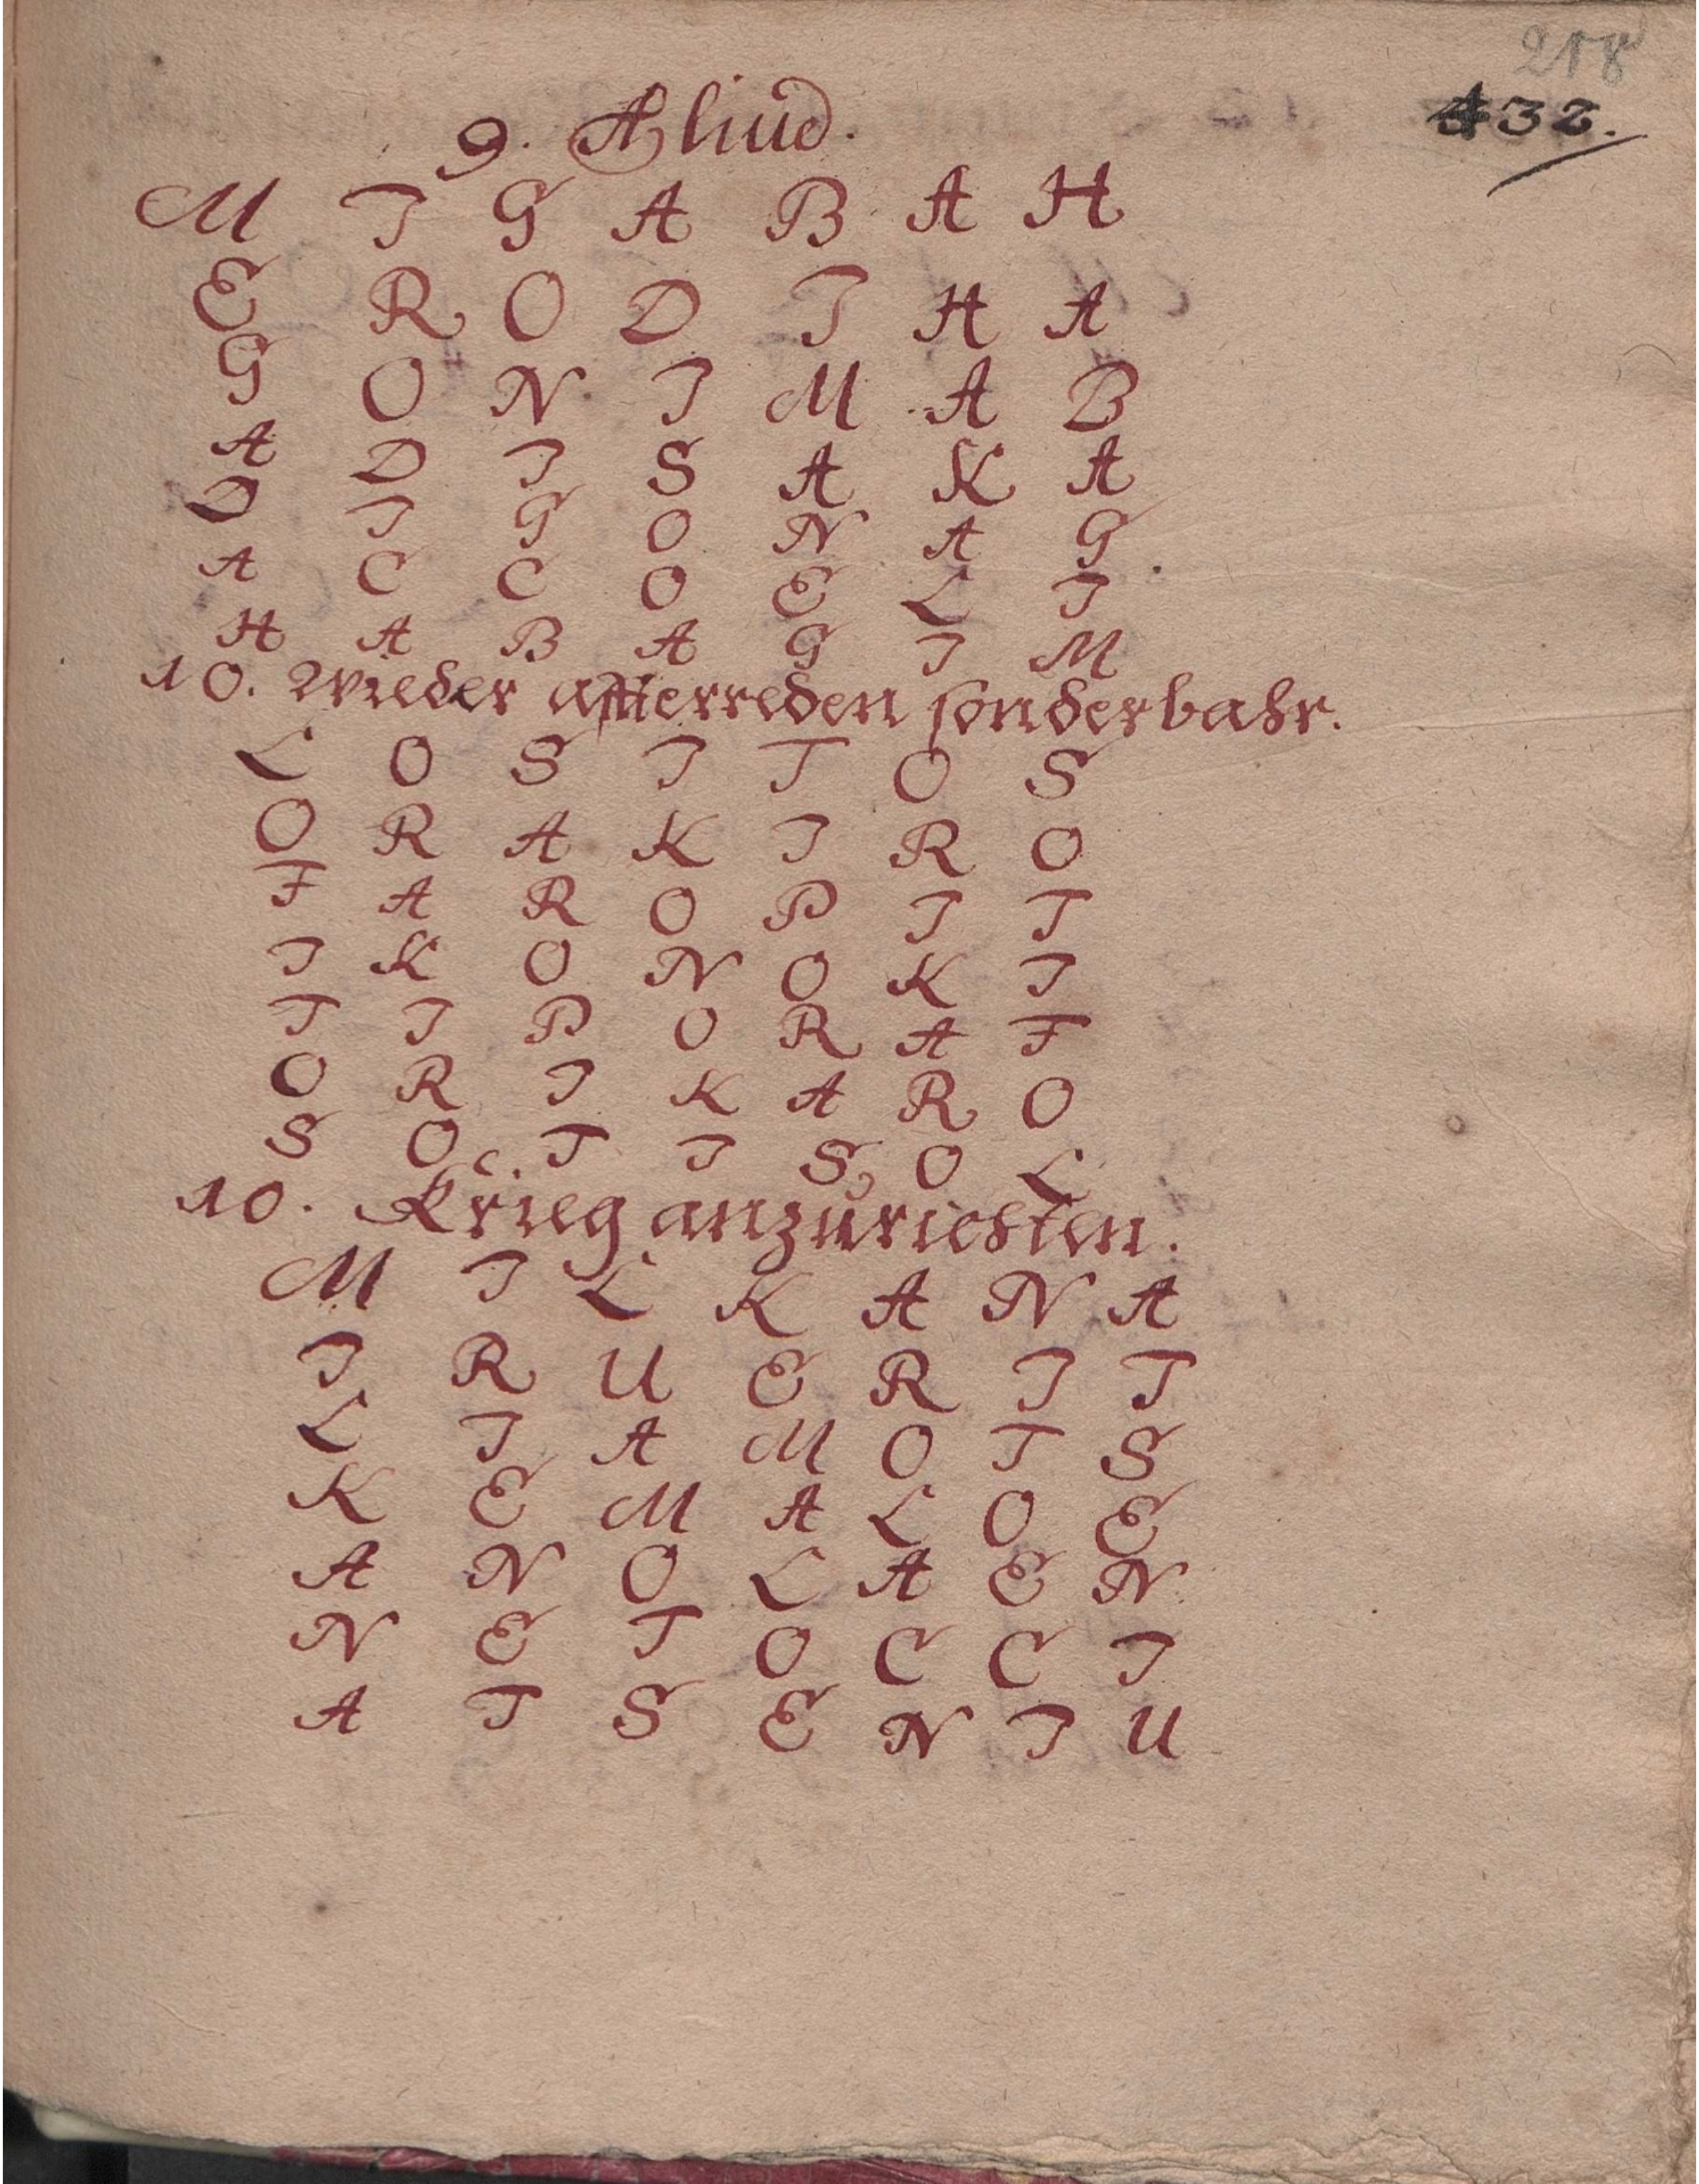 218
432.
9. Aliud.
M I G A B A H
E R O D I H A
G O N I M A B
A D I S A K A
D I G O N A G
A C C O E L I
H A B A G I M
10. Wieder affterreden sonderbahr.
L O S I T O S
O R A K I R O
F A R O P I T
I K O N O K I
T I P O R A F
O R I K A R O
S O T I S O L
10. Krieg anzurichten.
M I L K A N A
I R U E R I T
L I A M O T S
K E M A L O E
A N O L A E N
N E T O C C I
A T S E N I U